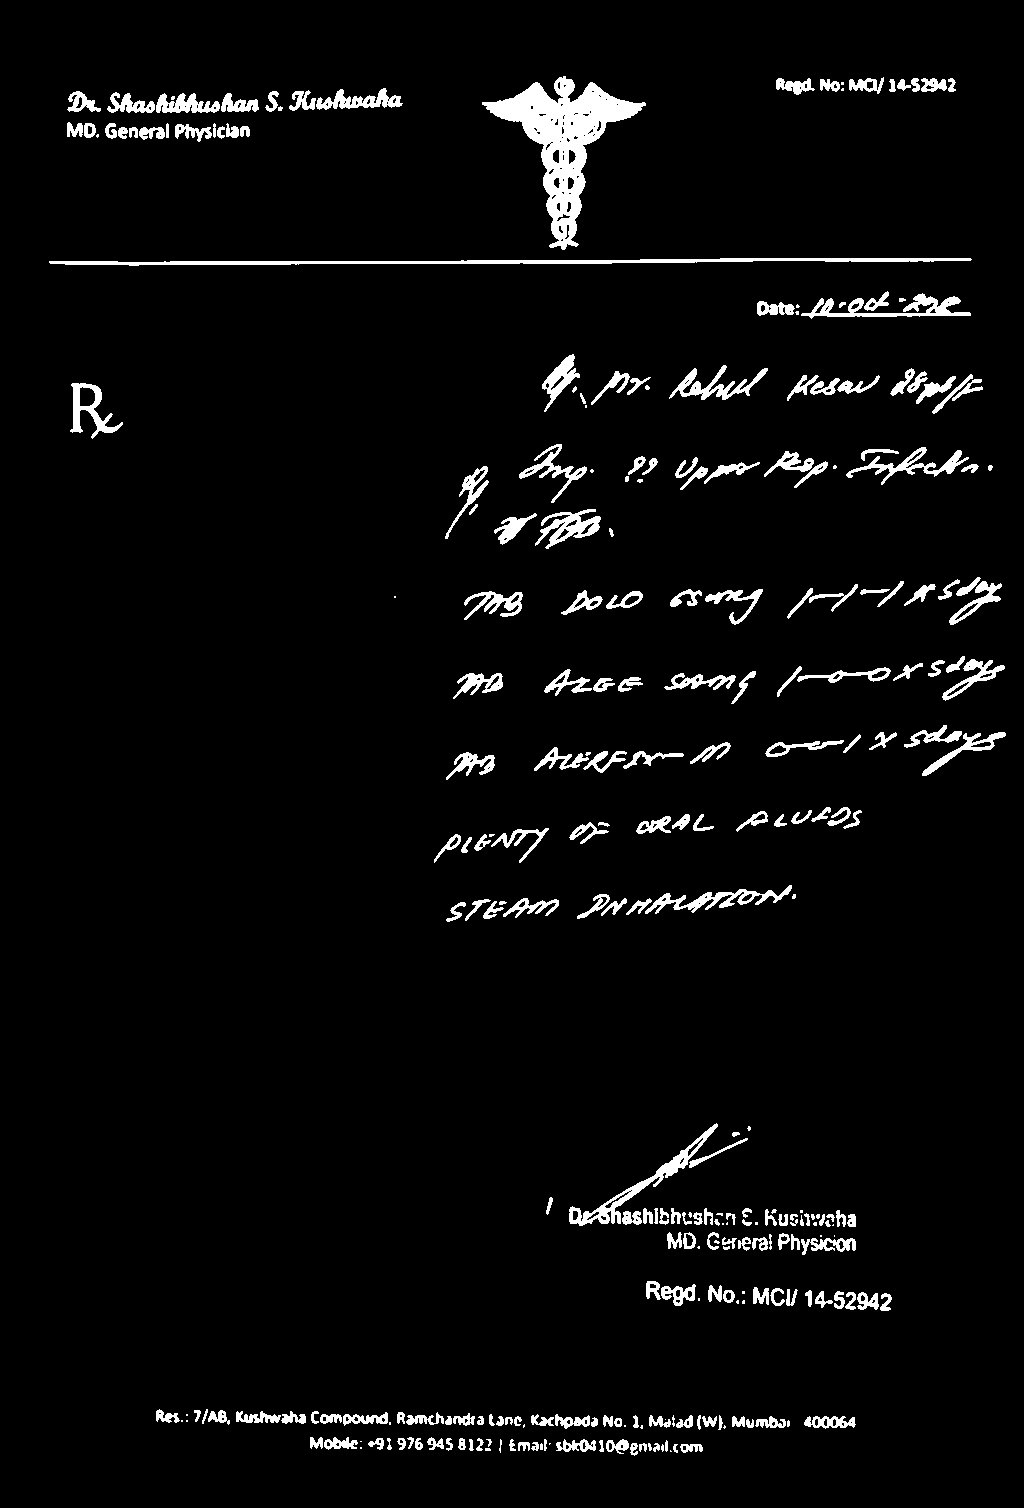 Dr. Shashibhushan S. Kushwaha
MD. General Physician
Regd. No: MCI/ 14-52942
Date: 10-Oct-
Rx
Mr. Rahul Kesav
Imp. ?? Upper Resp. Infectn.
TAB DOLO 650mg 1-1-1 x 5day
TAB AZEE 500mg 1-0-0 x 5days
TAB ALERFIX-M 0-0-1 x 5days
PLENTY OF ORAL FLUIDS
STEAM INHALATION.
Dr. Shashibhushan S. Kushwaha
MD. General Physician
Regd. No.: MCI/ 14-52942
Res.: 7/AB, Kushwaha Compound, Ramchandra Lane, Kachpada No. 1, Malad (W), Mumbai 400064
Mobile: +91 976 945 8122 | Email: sbk0410@gmail.com